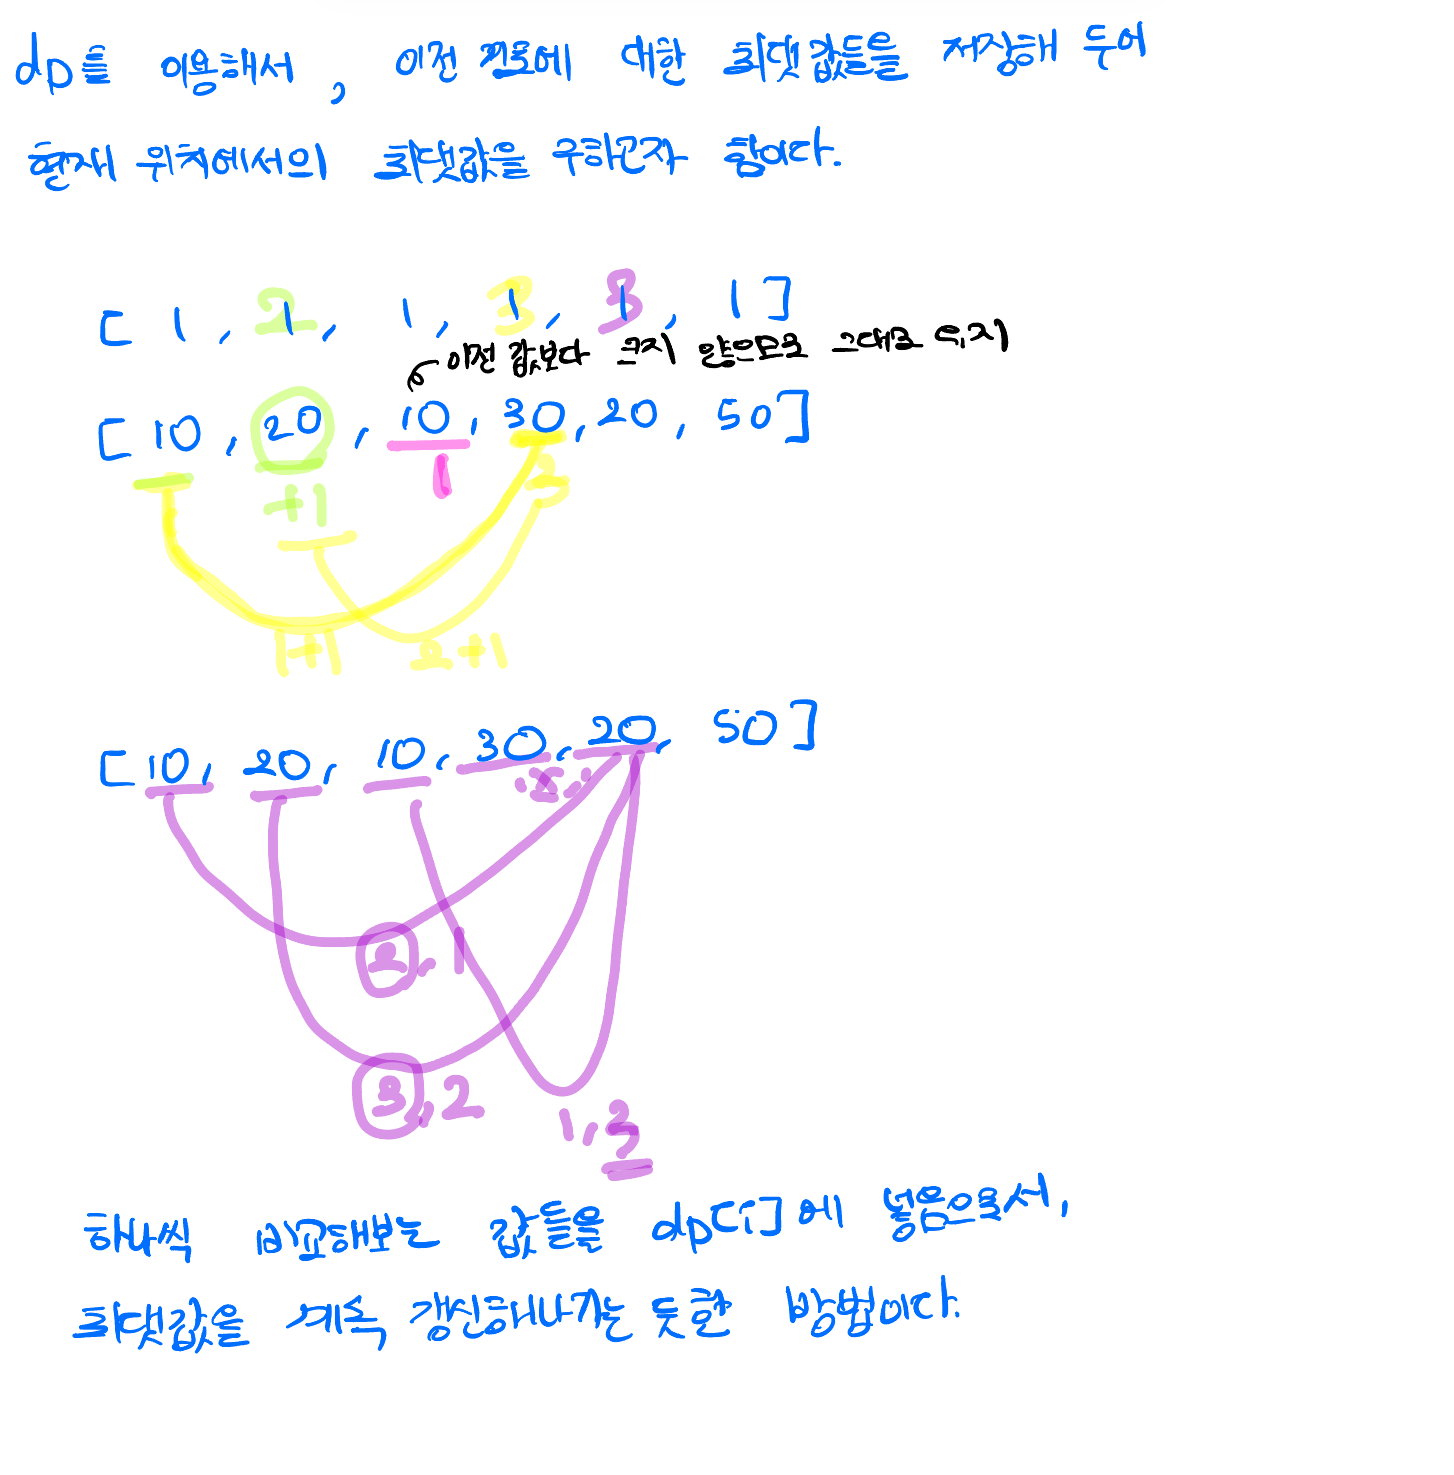 dp를 이용해서, 이전 경로에 대한 최댓값들을 저장해 두어
현재 위치에서의 최댓값을 구하고자 함이다.
[ 1, 2, 1, 3, 3, 1 ]
이전 값보다 크지 않으므로 그대로 유지
[ 10, 20, 10, 30, 20, 50 ]
+1 1 3
1+1 2+1
[ 10, 20, 10, 30, 20, 50 ]
2, 1
3, 2
1, 3
하나씩 비교해보는 값들을 dp[i]에 넣음으로서,
최댓값을 계속 갱신해나가는 듯한 방법이다.